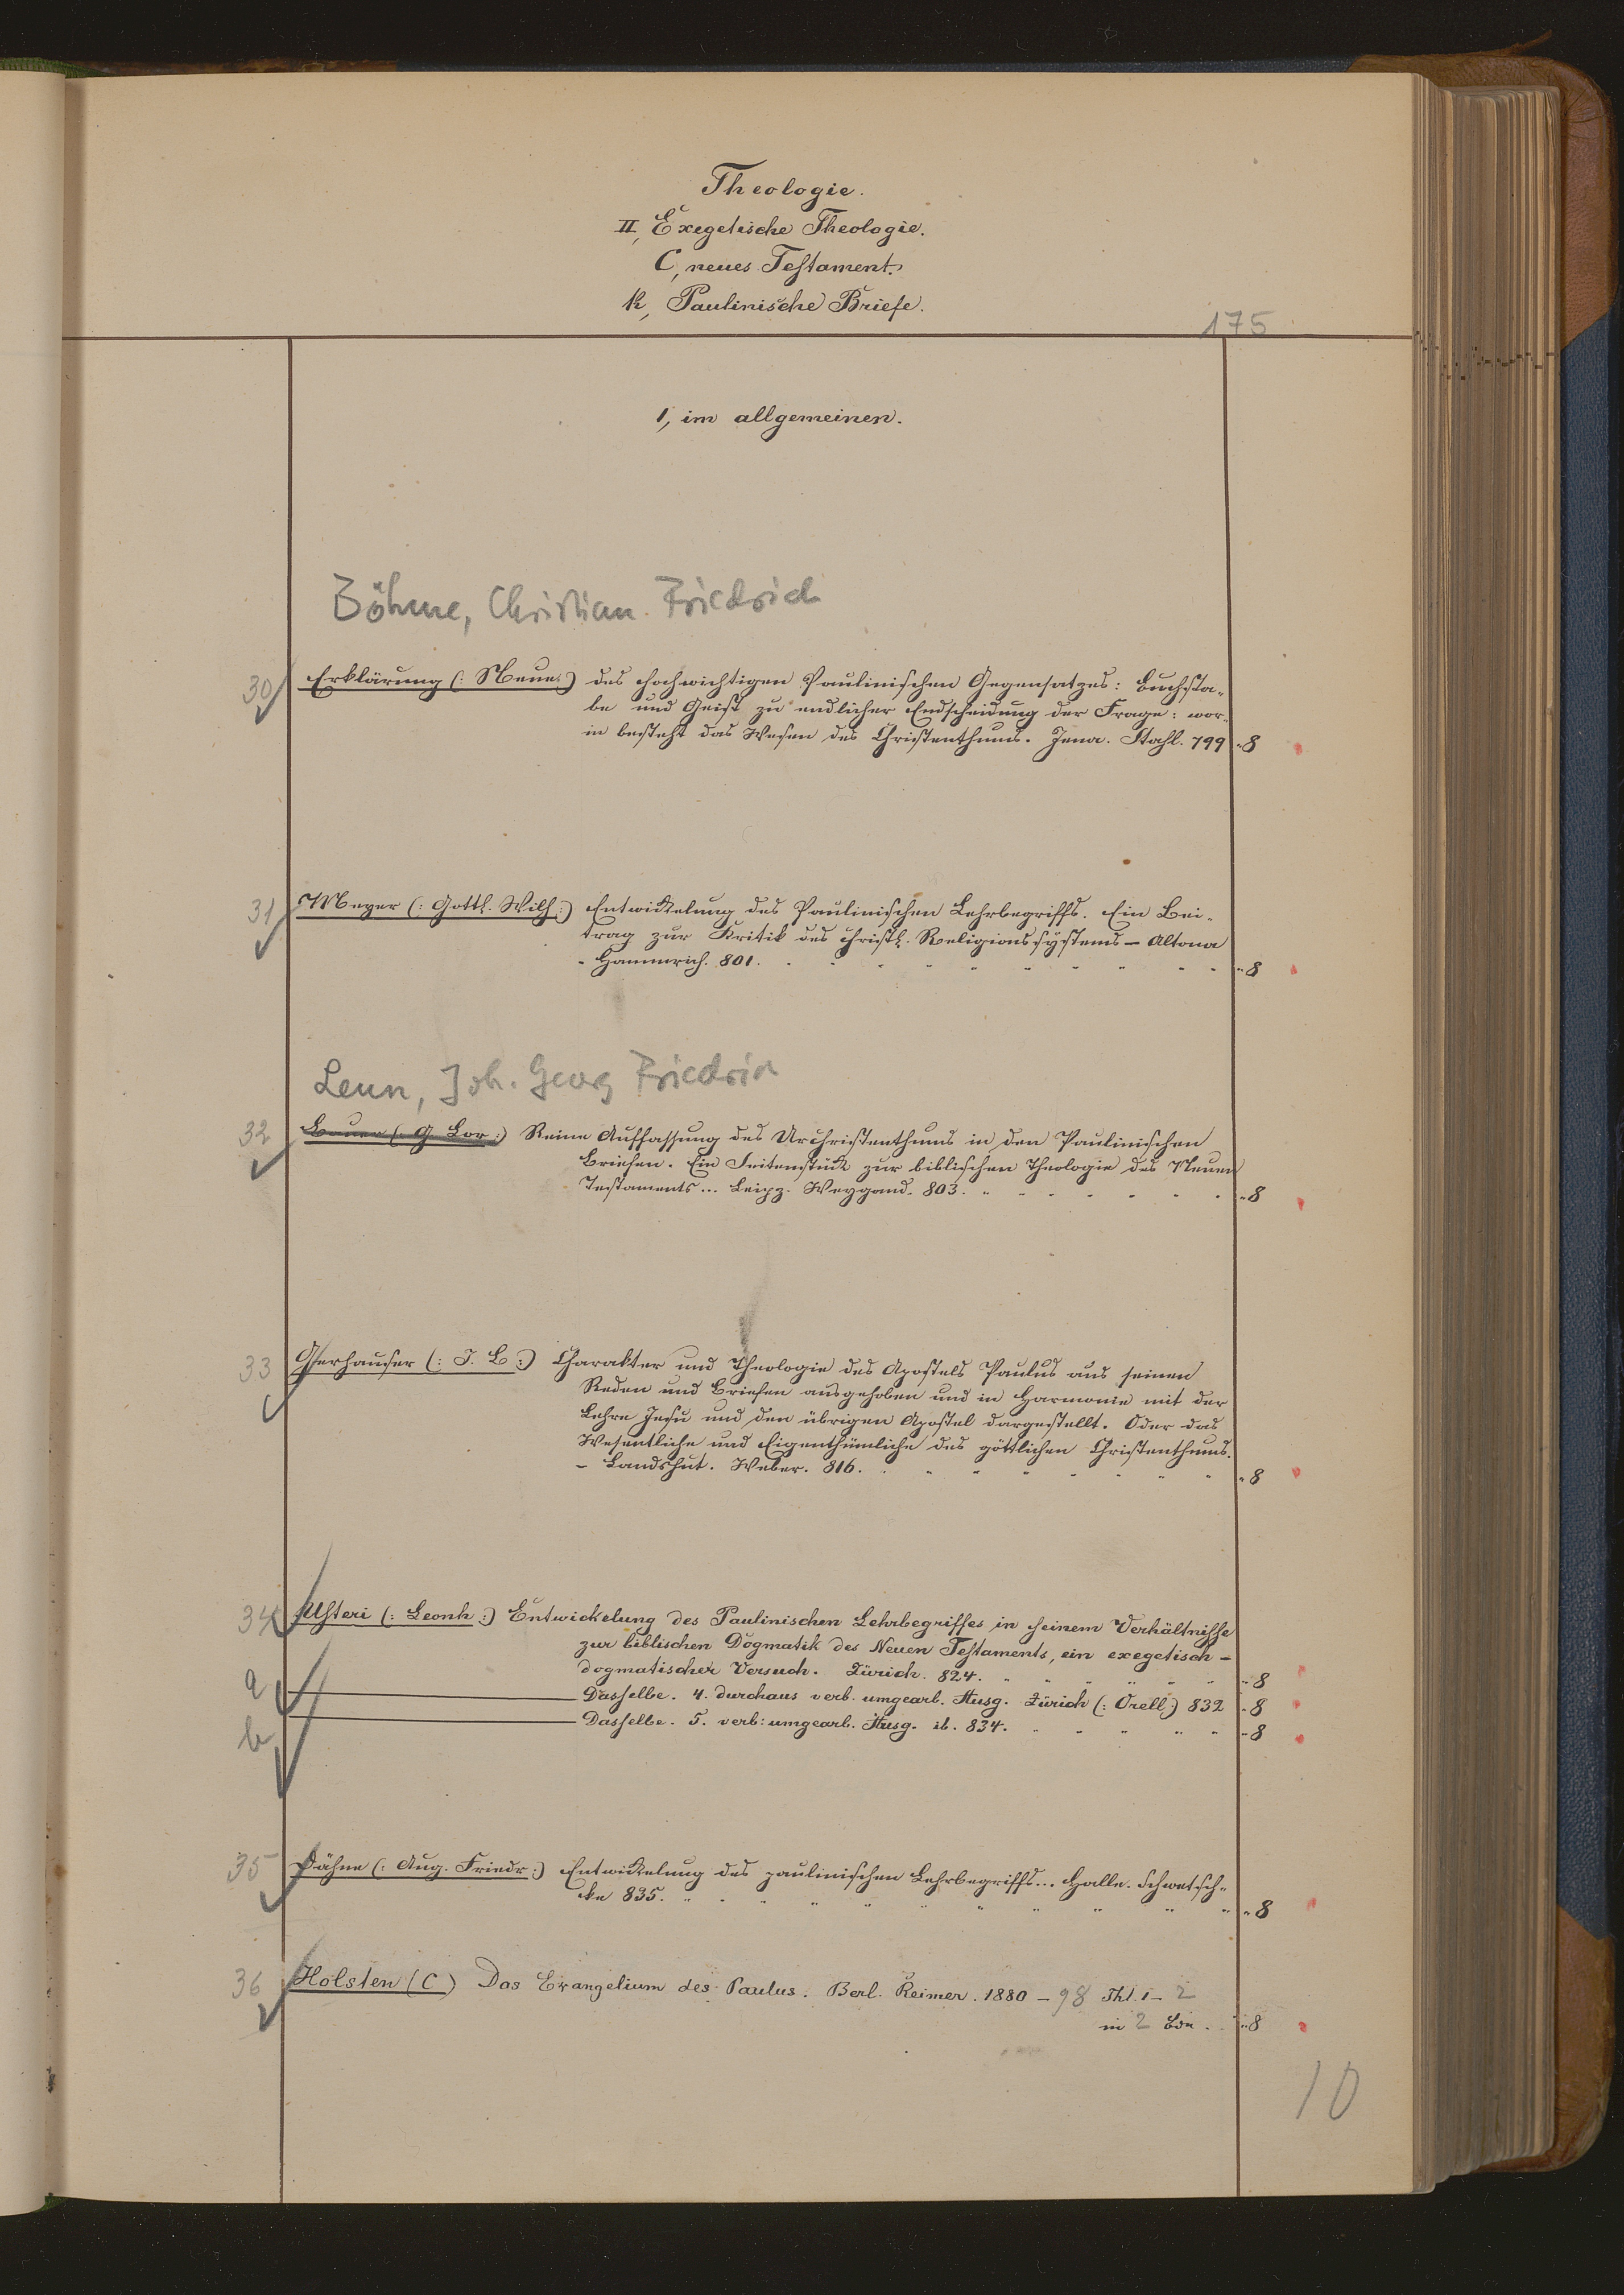 Theologie.
II, Exegetische Theologie.
C, neues Testament.
k, Paulinische Briefe.
175
1, im allgemeinen.
Böhme, Christian Friedrich
30 Erklärung (: Neue :) des hochwichtigen Paulinischen Gegensatzes: Buchsta-
be und Geist zu endlicher Endscheidung der Frage: wor-
in besteht das Wesen des Christenthums. Jena. Stahl. 799 „ 8
31 Meyer (: Gottl. Wilh :) Entwickelung des Paulinischen Lehrbegriffs. Ein Bei-
trag zur Kritik des christl. Religionssystems – Altona
- Hammrich. 801. „ 8
Leun, Joh. Georg Friedrich
32 Bauer (: G. Lor :) Reine Auffassung des Urchristenthums in den Paulinischen
Briefen. Ein Seitenstück zur biblischen Theologie des Neuen
Testaments... Leipz. Weygand. 803. „ 8
33 Gerhauser (: J. B :) Charakter und Theologie des Apostels Paulus aus seinen
Reden und Briefen ausgehoben und in Harmonie mit der
Lehre Jesu und den übrigen Apostel dargestellt. Oder das
Wesentliche und Eigenthümliche des göttlichen Christenthums.
– Landshut. Weber. 816. „ 8
34 Usteri (: Leonh :) Entwickelung des Paulinischen Lehrbegriffes in seinem Verhältnisse
zur biblischen Dogmatik des Neuen Testaments, ein exegetisch –
dogmatischer Versuch. Zürich. 824. „ 8
a Dasselbe. 4. durchaus verb. umgearb. Ausg. Zürich (: Orell :) 832 „ 8
b Dasselbe. 5. verb: umgearb. Ausg. ib. 834. „ 8
35 Dähne (: Aug. Friedr :) Entwickelung des paulinischen Lehrbegriffs... Halle. Schwetsch-
ke 835. „ 8
36 Holsten (C) Das Evangelium des Paulus. Berl. Reimer. 1880 – 98 Thl. 1 – 2
in 2 Bdn. „ 8
10